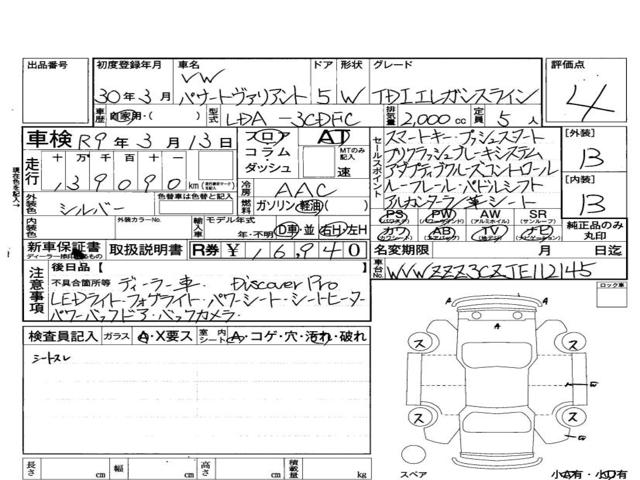 出品番号 初度登録年月 車名 ドア 形状 グレード 評価点
VW
30年3月 パサートヴァリアント 5 W TDIエレガンスライン 4
車歴 自家用・( ) 型式 LDA-3CDFC 排気量 2,000cc 定員 5人
車検 R9年3月13日 フロア AT
コラム・ダッシュ MTのみ記入 速
セールスポイント
スマートキー・プッシュスタート
プリクラッシュブレーキシステム
アダプティブクルーズコントロール
ルーフレール・パドルシフト
アルカンターラ/革シート
[外装] 13
[内装] 13
現在色を記入→
走行 十 万 千 百 十
139090 km
冷房 AAC
燃料 ガソリン・軽油・( )
外装色 シルバー 色替車は色替前の色
内装色 外装カラーNo. 輸入車 モデル年式 年・不明 D車・並 右H・左H
PS PW AW SR
(パワステ) (パワーウィンド) (アルミホイル) (サンルーフ)
カワ AB TV ナビ
純正品のみ丸印
新車保証書 取扱説明書 R券 ¥16,940
名変期限 月 日迄
車台No. WVWZZZ3CZJE112145
ロック車
注意事項
後日品【
不具合箇所等 ディーラー車. Discover Pro
LEDライト・フォグライト・パワーシート・シートヒーター
パワーバックドア・バックカメラ
検査員記入 ガラス A・X要ス 室内シート A・コゲ・穴・汚れ・破れ
シートスレ
A
A
ス ス
ス ス
スペア
小A有・小U有
長さ cm 幅 cm 高さ cm 積載量 kg